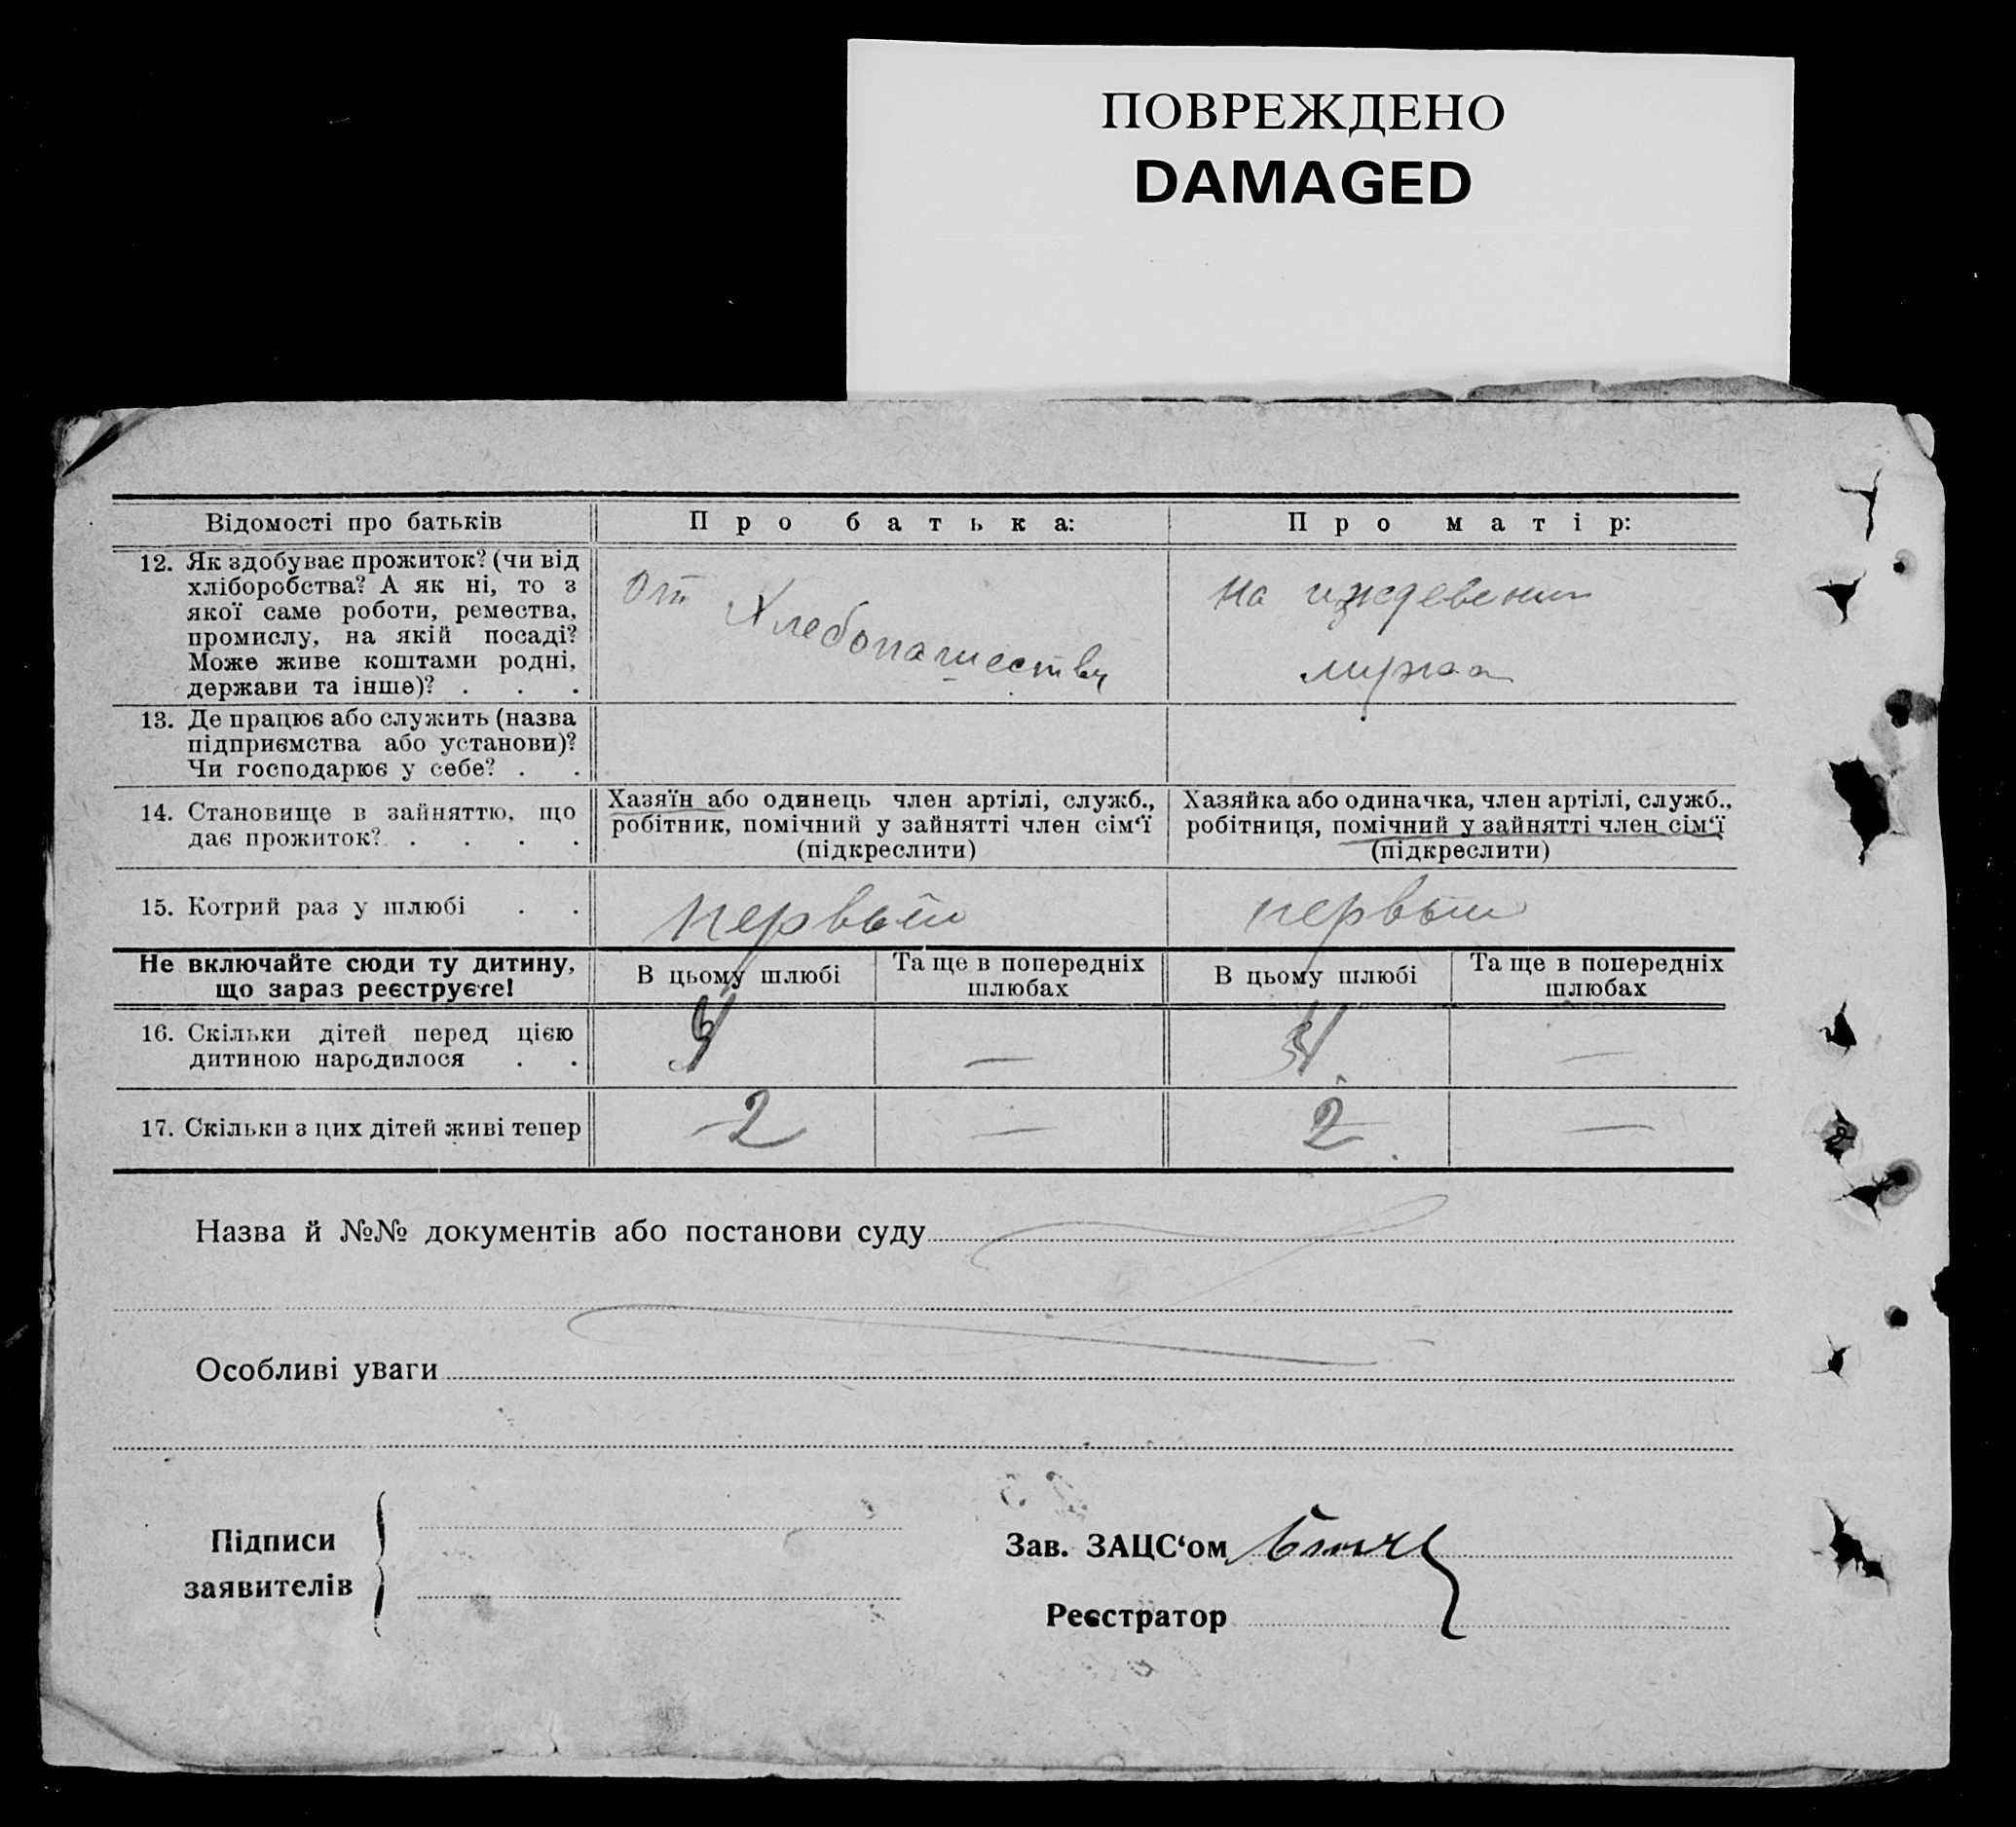 ПОВРЕЖДЕНО
DAMAGED
Відомості про батьків
Про батька:
Про матір:
12. Як здобуває прожиток? (чи від
хліборобства? А як ні, то з
якої саме роботи, ремества,
промислу, на якій посаді?
Може живе коштами родні,
держави та інше)? . . .
От Хлебопашества
на иждевении
мужа
13. Де працює або служить (назва
підприємства або установи)?
Чи господарює у себе? . .
14. Становище в зайняттю, що
дає прожиток? . . . .
Хазяїн або одинець член артілі, служб.,
робітник, помічний у зайнятті член сім‘ї
(підкреслити)
Хазяйка або одиначка, член артілі, служб.,
робітниця, помічний у зайнятті член сім‘ї
(підкреслити)
15. Котрий раз у шлюбі . .
первый
первый
Не включайте сюди ту дитину,
що зараз реєструєте!
В цьому шлюбі
Та ще в попередніх
шлюбах
В цьому шлюбі
Та ще в попередніх
шлюбах
16. Скільки дітей перед цією
дитиною народилося . .
—
—
17. Скільки з цих дітей живі тепер
2
—
2
—
Назва й №№ документів або постанови суду
Особливі уваги
Підписи
заявителів
Зав. ЗАЦС‘ом
Реєстратор